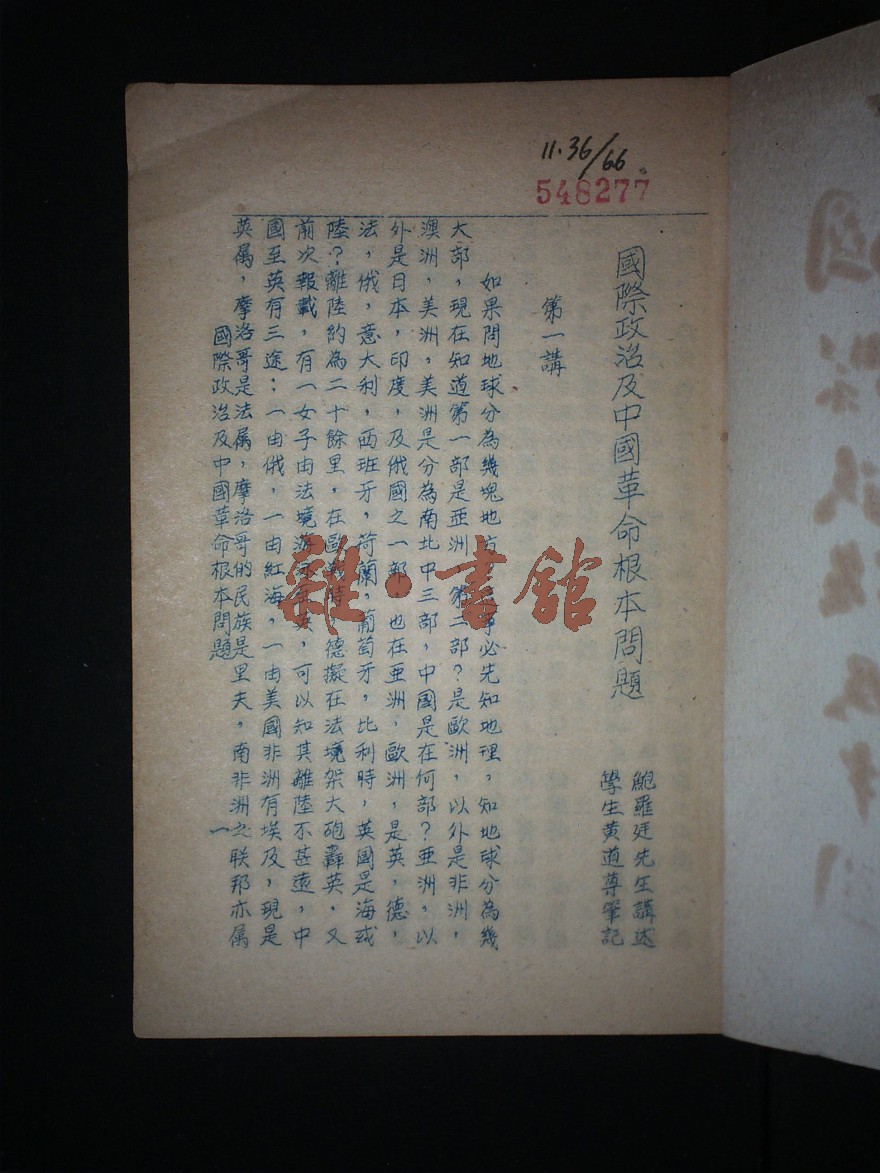 11.36/66
548277
國際政治及中國革命根本問題
鮑羅廷先生講述
學生黄道尊筆記
第一講
如果問地球分為幾塊地方 事必先知地理，知地球分為幾
大部，現在知道第一部是亞洲，第二部？是歐洲，以外是非洲，
澳洲，美洲，美洲是分為南北中三部，中國是在何部？亞洲，以
外是日本，印度，及俄國之一部 也在亞洲，歐洲，是英，德，
法，俄，意大利，西班牙，荷蘭，葡萄牙，比利時，英國是海或
陸？離陸約為二十餘里，在歐戰時，德擬在法境架大砲轟英，又
前次報載，有一女子由法境游 英，可以知其離陸不甚遠，中
國至英有三途：一由俄，一由紅海，一由美國非洲有埃及，現是
英属，摩洛哥是法属，摩洛哥的民族是里夫，南非洲之联邦亦属
國際政治及中國革命根本問題
一
雜·書館